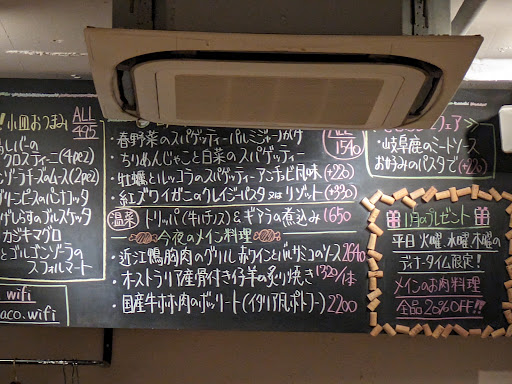 小皿おつまみ ALL 495
クロスティーニ(4pcs)
とゴルゴンゾーラの
スフォルマート
カジキマグロ
wifi
aco.wifi
・春野菜のスパゲッティーパルミジャーノがけ
・ちりめんじゃこと白菜のスパゲッティー
・牡蠣とルッコラのスパゲッティーアンチョビ風味(+220)
・紅ズワイガニのクレイジーパスタ又はリゾット
ALL 1540
温菜 トリッパ(牛ハチノス)&ギアラの煮込み 1650
今夜のメイン料理
・近江鴨胸肉のグリル 赤ワインとバルサミコのソース 2640
・オーストラリア産骨付き仔羊の炙り焼き 1320/本
・国産牛ホホ肉のボッリート(イタリア風ポトフー) 2200
フェア
・岐阜産のミートソース
お好みのパスタで(+220)
1月のプレゼント
平日 火曜、水曜、木曜の
ディナータイム限定!
メインのお肉料理
全品20%OFF!!